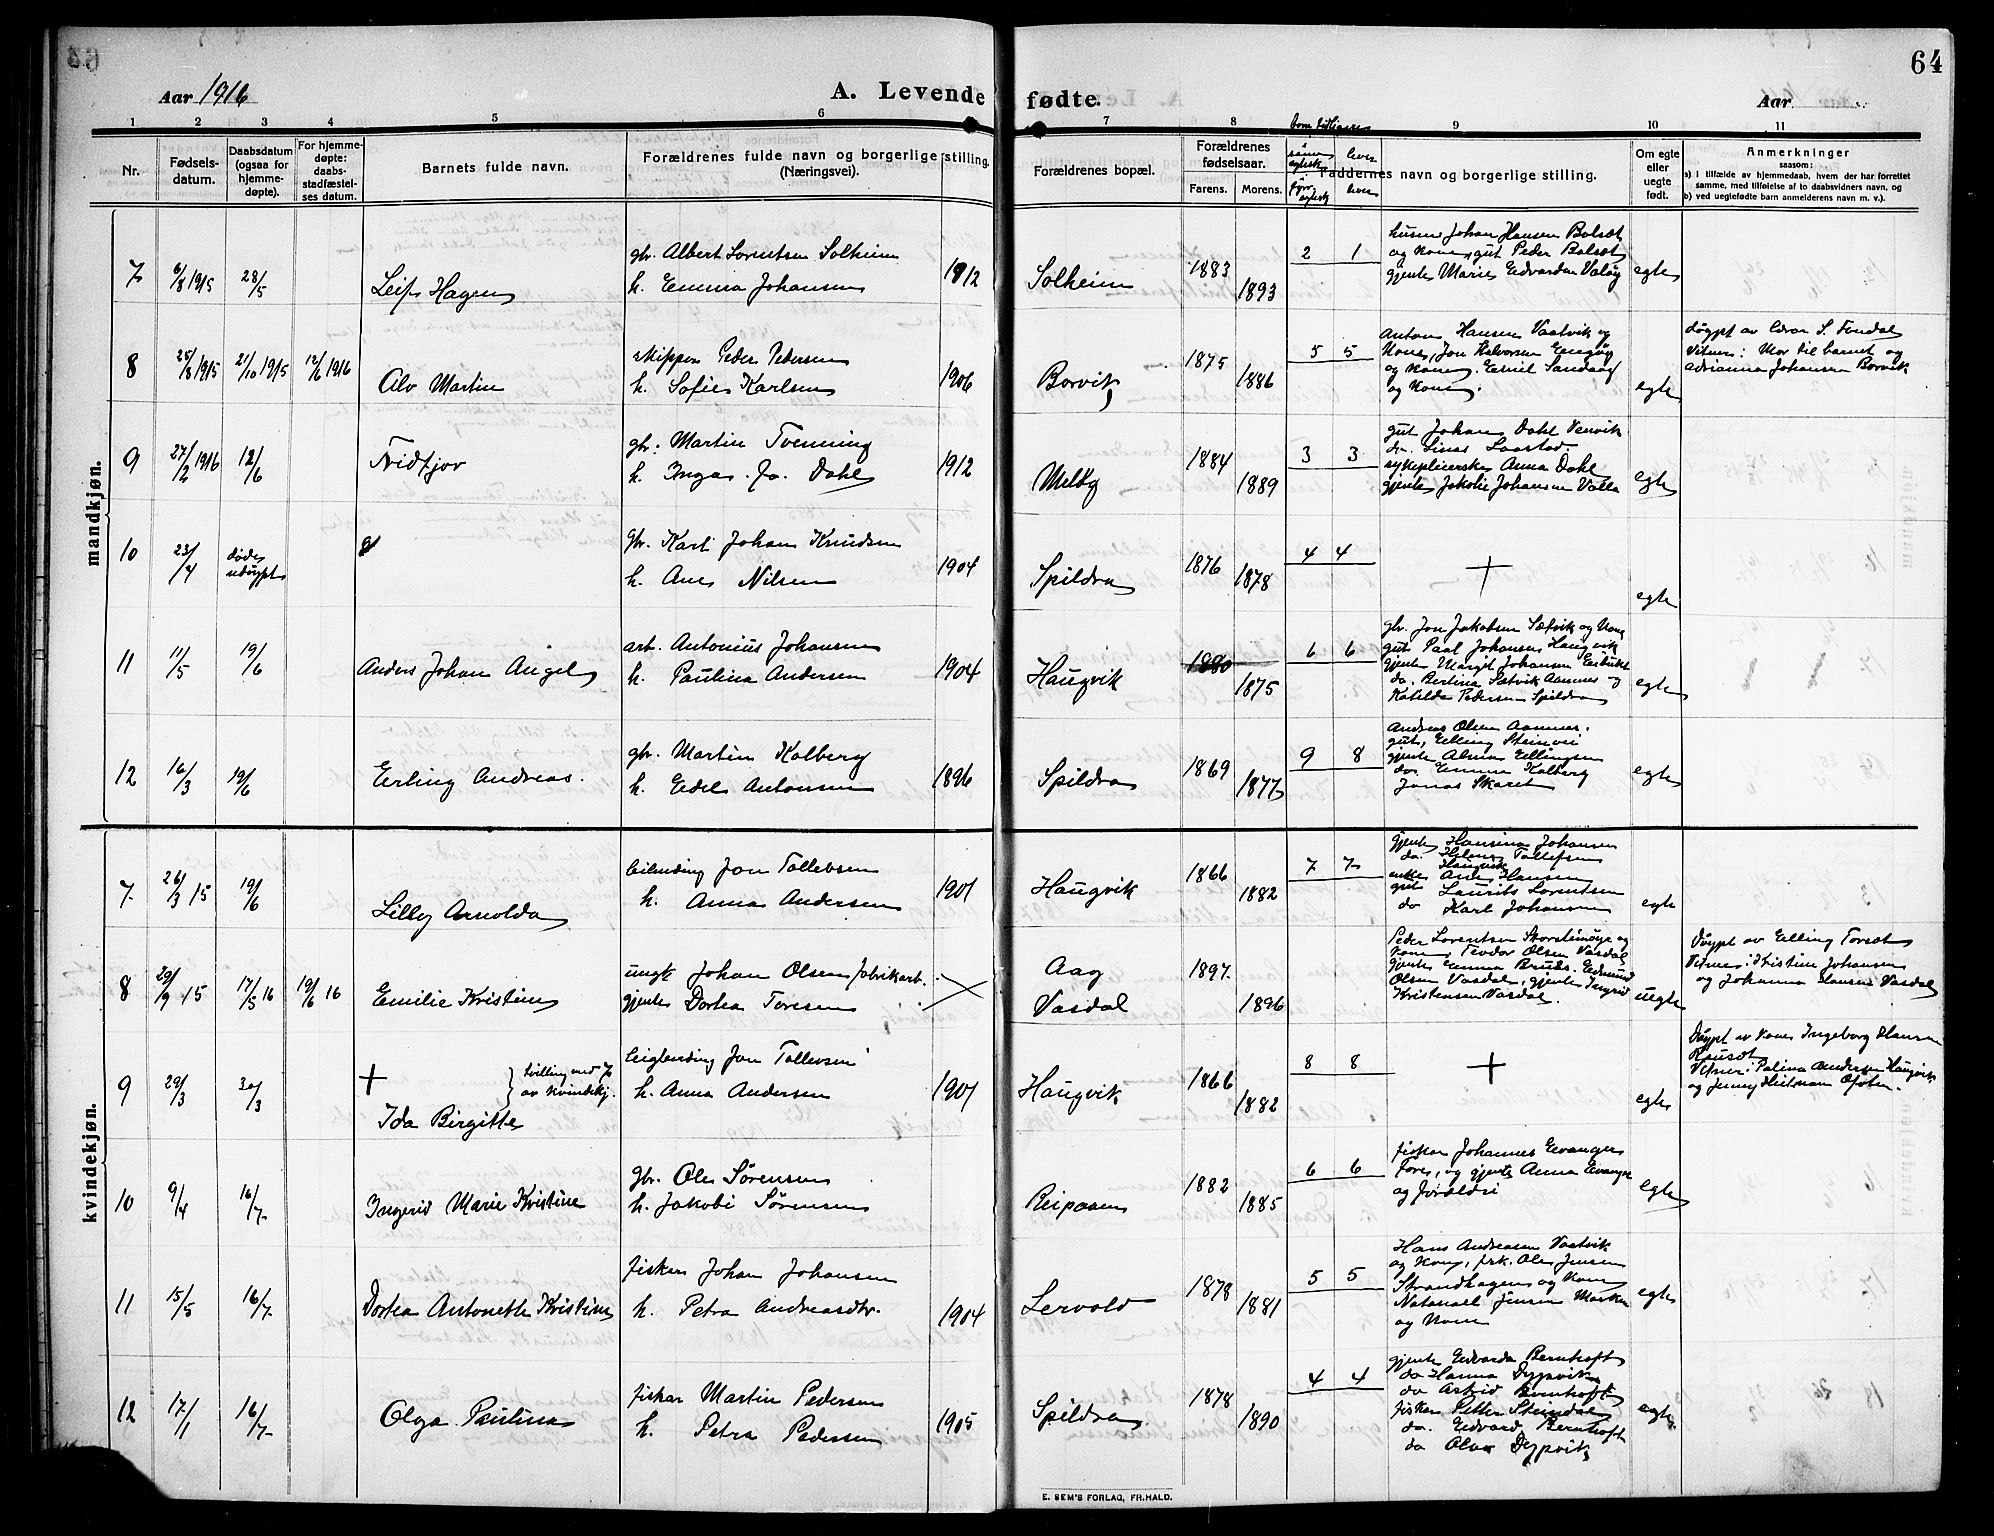 64
Aar 1916
A. Levende fødte.
Aar
1 2 3 4 5 6 7 8 9 10 11
Nr.
Fødsels-
datum.
Daabsdatum
(ogsaa for
hjemme-
døpte).
For hjemme-
døpte:
daabs-
stadfæstel-
ses datum.
Barnets fulde navn.
Forældrenes fulde navn og borgerlige stilling.
(Næringsvei).
Forældrenes bopæl.
Forældrenes
fødselsaar.
Farens. Morens.
Faddernes navn og borgerlige stilling.
Om egte
eller
uegte
født.
Anmerkninger
saasom:
a) i tilfælde av hjemmedaab, hvem der har forrettet
samme, med tilføielse af to daabsvidners navn, og
b) ved uegtefødte barn anmelderens navn m. v.).
mandkjøn.
7 6/8 1915 28/5 Leif Hagen
gbr. Albert Lorentsen Solheim
h. Emma Johansen
1912 Solheim 1883 1893 2 1
Johan Hansen Balsæt
og kone, gut Peder Balsæt
gjente Marie Edvardsen Valøy
egte
8 25/8 1915 21/10 1915 12/6 1916 Alv Martin
skipper Peder Pedersen
h. Sofie Karlsen
1906 Borvik 1875 1886 5 5
Anton Hansen Vaatvik og
kone, Jon Halvorsen Engøy
og kone. Emil Sandaag
og kone.
egte
døypt av Edvar S. Fondal
Vitner: Mor til barnet og
Adrianna Johansen Borvik
9 27/2 1916 12/6 Fridtjov
gbr. Martin Tvenning
h. Inga Jo. Dahl
1912 Meløy 1884 1889 3 3
gut Johan Dahl Venvik
do. Sinas Laastad
sykepleierske Anna Dahl
gjente Jakobie Johansen Valla
egte
10 23/4 døde udøypt
gbr. Karl Johan Knudsen
h. Ane Nilsen
1904 Spildra 1876 1878 4 4 + egte
11 11/5 19/6 Anders Johan Angel
arb. Antonius Johansen
h. Paulina Andersen
1904 Haugvik 1880 1875 6 6
gbr. Jon Jakobsen Sætvik og kone
gut Paal Johansen Haugvik
gjente Margit Johansen Esbukt
do. Bertina Sætvik Aamnes og
Katilda Pedersen Spildra
egte
12 16/3 19/6 Erling Andreas.
gbr. Martin Kolberg
h. Edel Antonsen
1896 Spildra 1869 1877 9 8
Andreas Olsen Aamnes.
gut, Elling Steinvei
gjente Alma Ellingsen
do Emma Kolberg
Jonas Skaret
egte
kvindekjøn.
7 26/3 15 19/6 Lilly Arnolda
leilending Jon Tollevsen
h. Anna Andersen
1901 Haugvik 1866 1882 7 7
gjente Hansina Johansen
do. Helene Tollefsen
Haugvik
enke Ane Hansen
gut Laurits Lorentsen
do Karl Johansen
egte
8 29/9 15 17/5 16 19/6 16 Emilie Kristine
ungk Johan Olsen fabrikarb.
gjente Dortea Toresen
Aag
Vasdal
1897. 1896
Peder Lorentsen Storsteinøye og
kone, Teodor Olsen Vasdal
gjente Emma Bruds. Edmund
Olsen Vasdal, gjente Ingrid
Kristensen Vasdal.
uegte
Døypt av Elling Torset
Vitner: Kristine Johansen
og Johanna Hansen Vasdal
9 29/3 30/3 + Ida Birgitte
tvilling med 7
av kvindekj.
leiglending Jon Tollevsen
h. Anna Andersen
1901 Haugvik 1866 1882 8 8 + egte
Døypt av kone Ingeborg Hansen
Vitner: Palina Andersen Haugvik
og Jenny Heitman Ofoten.
10 9/4 16/7 Ingerid Marie Kristine
gbr. Ole Sørensen
h. Jakobi Sørensen
Reipaaen 1882 1885 6 6
fisker Johannes Evanger
Fore, og gjente Anna Evanger
og forældri
egte
11 15/5 16/7 Dortea Antonette Kristine
fisker Johan Johansen
h. Petra Andreasdtr.
1904 Lervold 1878 1881 5 5
Hans Andreasen Vaatvik
og kone, frk. Ole Jensen
Strandhagen og kone
Natanael Jensen Marken
og kone
egte
12 17/1 16/7 Olga Paulina
fisker Martin Pedersen
h. Petra Pedersen
1905 Spildra 1878 1890 4 4
gjente Edvarda Bernhoft
do Hanna Dypvik
do Astrid Bernhoft
fisker Petter Steindal
do. Edvard Bernhoft
do Olav Dypvik
egte
E. SEM'S FORLAG, FR.HALD.